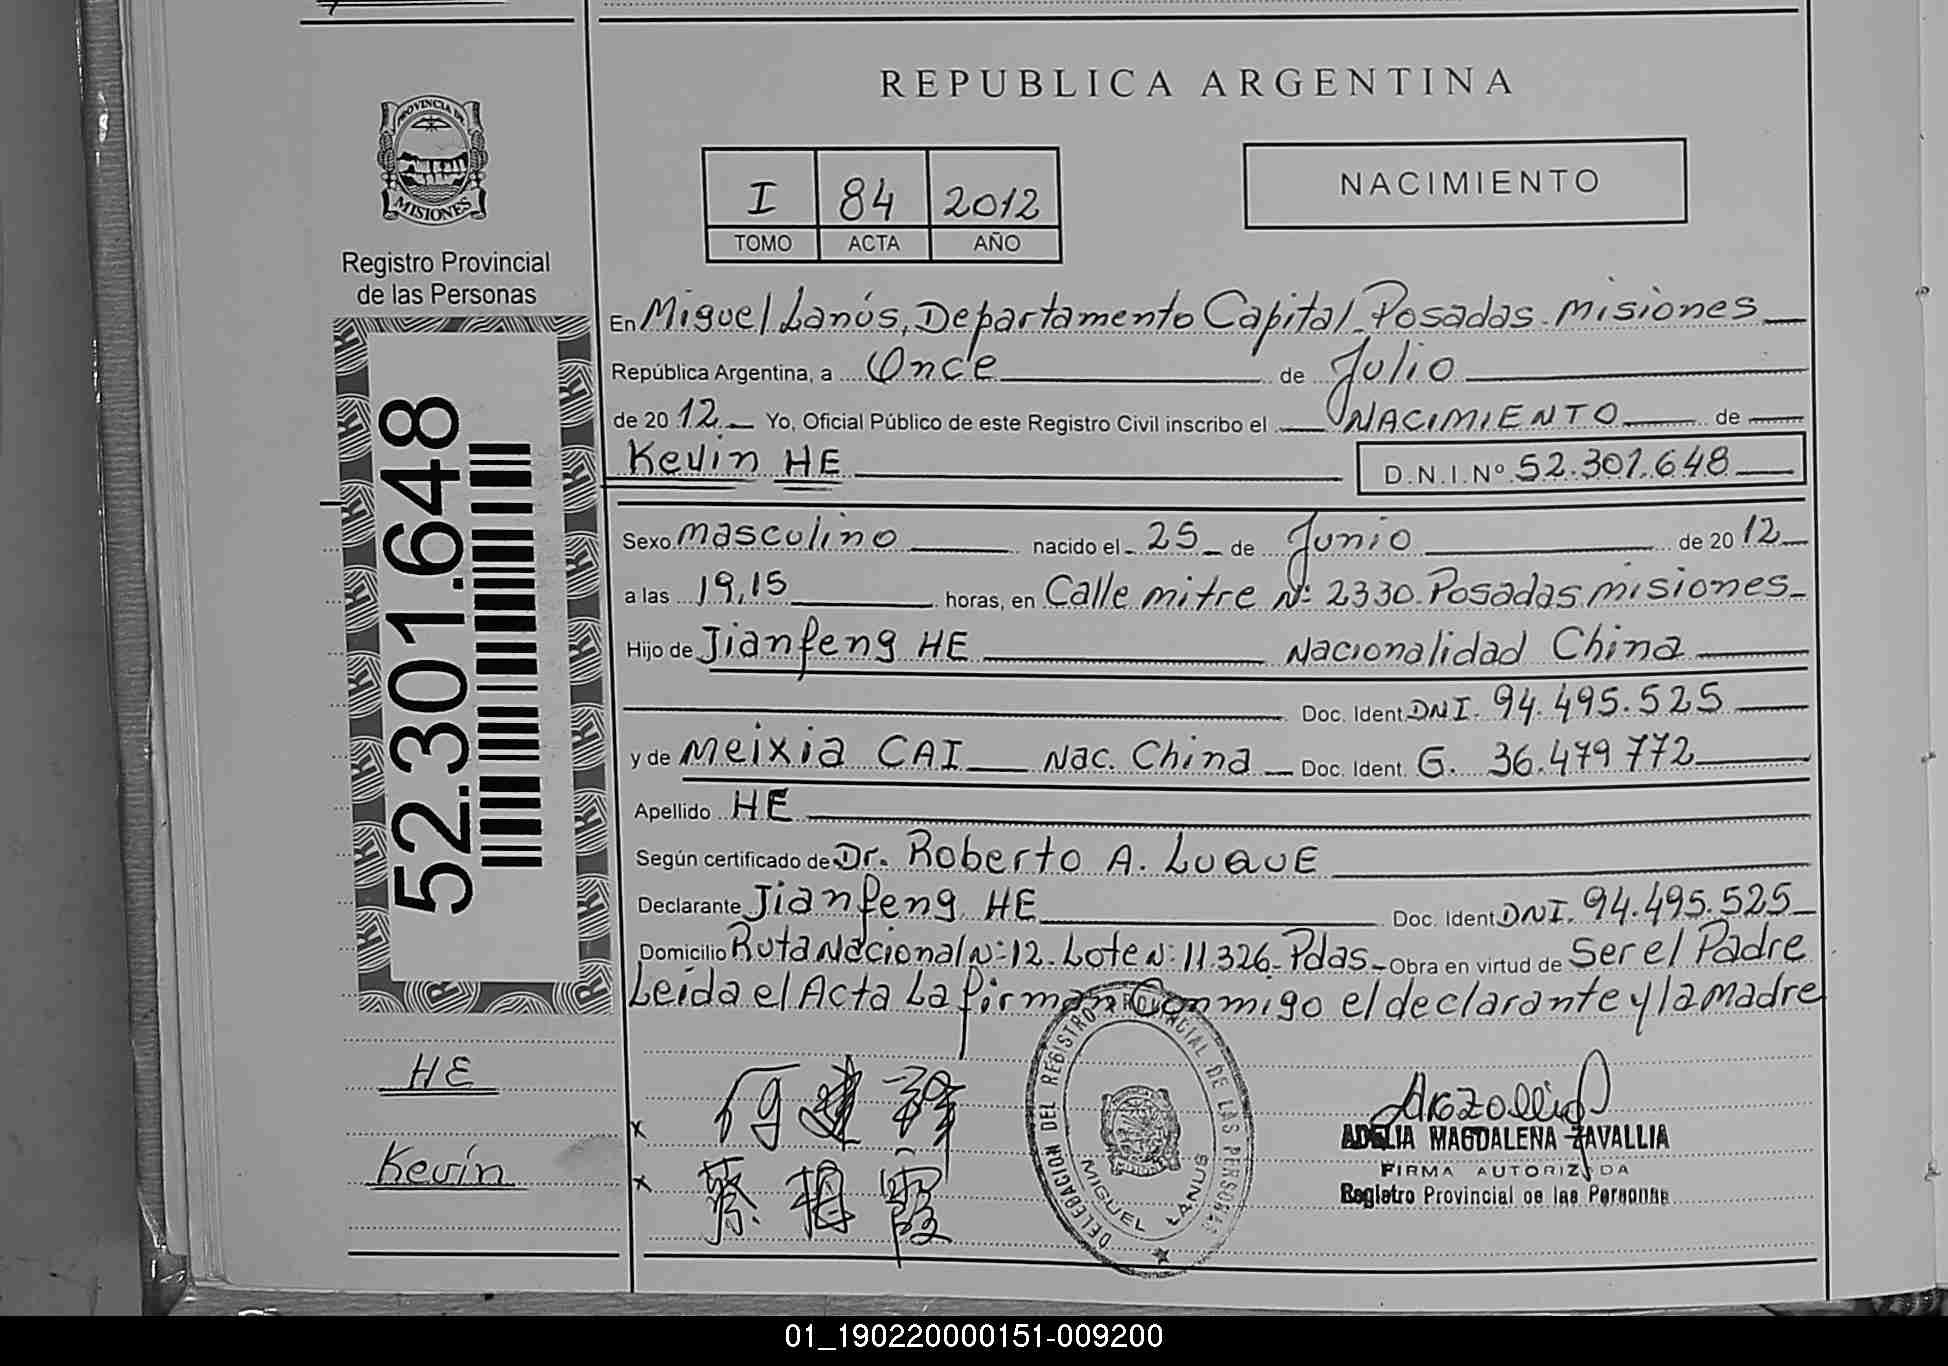 PROVINCIA DE
MISIONES
Registro Provincial
de las Personas
52.301.648
HE
Kevin
REPUBLICA ARGENTINA
I 84 2012
TOMO ACTA AÑO
NACIMIENTO
En Miguel Lanús, Departamento Capital. Posadas. Misiones
República Argentina, a Once de Julio
de 2012 Yo, Oficial Público de este Registro Civil inscribo el NACIMIENTO de
Kevin HE D.N.I.Nº 52.301.648
Sexo masculino nacido el 25 de Junio de 2012
a las 19,15 horas, en Calle mitre Nº: 2330. Posadas misiones
Hijo de Jianfeng HE Nacionalidad China
Doc. Ident. DNI. 94.495.525
y de Meixia CAI Nac. China Doc. Ident. G. 36.479772
Apellido HE
Según certificado de Dr. Roberto A. LuquE
Declarante Jianfeng HE Doc. Ident DNI. 94.495.525
Domicilio Ruta Nacional N:12. Lote N:11.326. Pdas Obra en virtud de Ser el Padre
Leída el Acta La firman Conmigo el declarante y la madre
DELEGACION DEL REGISTRO PROVINCIAL DE LAS PERSONAS
MIGUEL LANUS
x 何建鋒
x 蔡楣霞
ADELIA MAGDALENA ZAVALLIA
FIRMA AUTORIZADA
Registro Provincial de las Personas
01_190220000151-009200